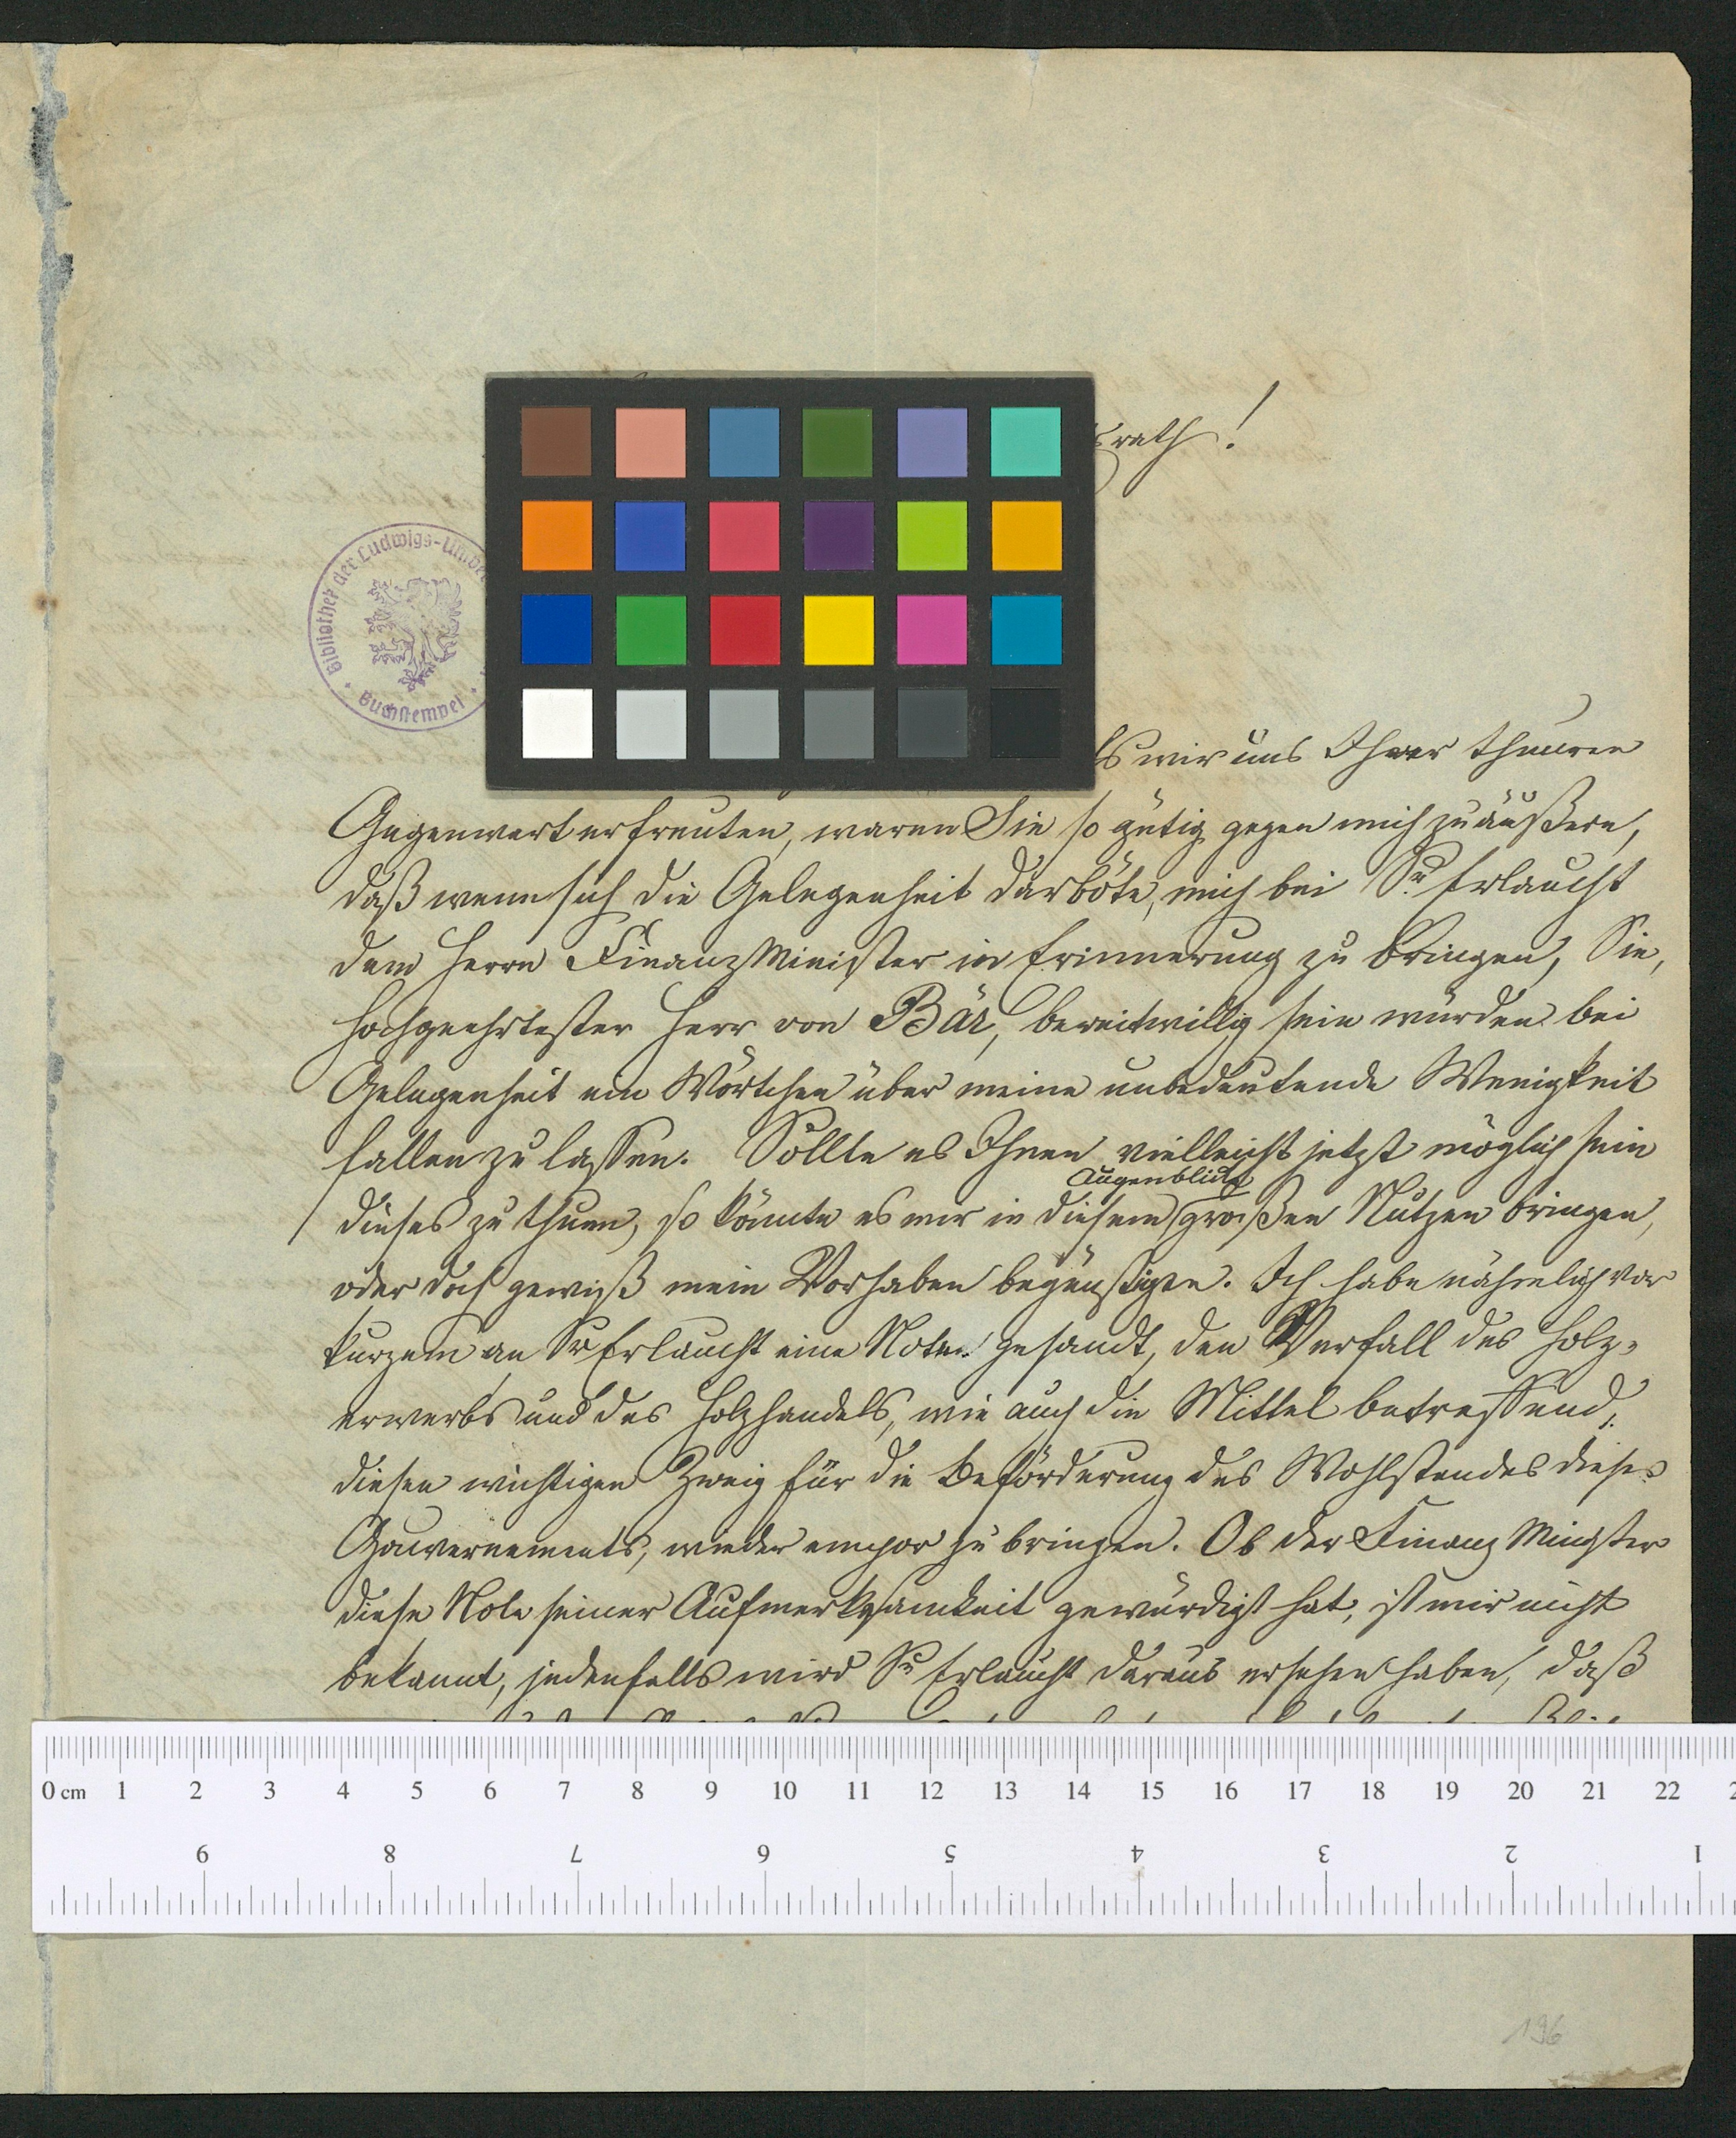 rath!
Bibliothek der Ludwigs-Univer
Buchstempel
ls wir uns Ihrer theuren
Gegenwart erfreuten, waren Sie so gütig gegen mich zu äußern,
daß wenn sich die Gelegenheit darböte, mich bei Sr Erlaucht
dem Herrn FinanzMinister in Erinnerung zu bringen, Sie,
hochgeehrtester Herr von Bär, bereitwillig sein würden bei
Gelegenheit ein Wörtchen über meine unbedeutende Wenigkeit
fallen zu lassen. Sollte es Ihnen vielleicht jetzt möglich sein
Augenblick
dieses zu thuen, so könnte es mir in diesem großen Nutzen bringen,
oder doch gewiß mein Vorhaben begünstigen. Ich habe nähmlich vor
kurzem an Sr Erlaucht eine Note gesandt, den Verfall des Holz-
erwerbs und des Holzhandels, wie auch die Mittel betreffend,
diesen wichtigen Zweig für die Beförderung des Wohlstandes dieses
Gouvernements, wieder empor zu bringen. Ob der Finanz Minister
diese Note seiner Aufmerksamkeit gewürdigt hat, ist mir nicht
bekannt, jedenfalls wird Sr Erlaucht daraus ersehen haben, daß
0 cm 1 2 3 4 5 6 7 8 9 10 11 12 13 14 15 16 17 18 19 20 21 22
9 8 7 6 5 4 3 2 1
196